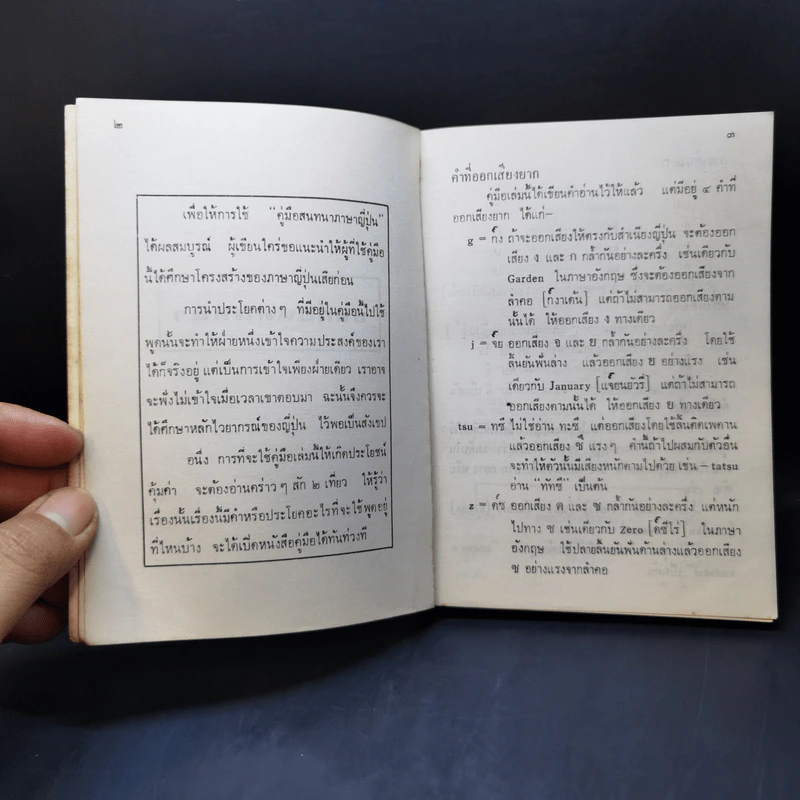 ๒
เพื่อให้การใช้ "คู่มือสนทนาภาษาญี่ปุ่น"
ได้ผลสมบูรณ์ ผู้เขียนใคร่ขอแนะนำให้ผู้ที่ใช้คู่มือ
นี้ได้ศึกษาโครงสร้างของภาษาญี่ปุ่นเสียก่อน
การนำประโยคต่างๆ ที่มีอยู่ในคู่มือนี้ไปใช้
พูดนั้นจะทำให้ฝ่ายหนึ่งเข้าใจความประสงค์ของเรา
ได้ก็จริงอยู่ แต่เป็นการเข้าใจเพียงฝ่ายเดียว เราอาจ
จะฟังไม่เข้าใจเมื่อเวลาเขาตอบมา ฉะนั้นจึงควรจะ
ได้ศึกษาหลักไวยากรณ์ของญี่ปุ่น ไว้พอเป็นสังเขป
อนึ่ง การที่จะใช้คู่มือเล่มนี้ให้เกิดประโยชน์
คุ้มค่า จะต้องอ่านคร่าวๆ สัก ๒ เที่ยว ให้รู้ว่า
เรื่องนั้นเรื่องนี้มีคำหรือประโยคอะไรที่จะใช้พูดอยู่
ที่ไหนบ้าง จะได้เปิดหนังสือคู่มือได้ทันท่วงที
๓
คำที่ออกเสียงยาก
คู่มือเล่มนี้ได้เขียนคำอ่านไว้ให้แล้ว แต่มีอยู่ ๔ คำที่
ออกเสียงยาก ได้แก่–
g = ก์ง ถ้าจะออกเสียงให้ตรงกับสำเนียงญี่ปุ่น จะต้องออก
เสียง ง และ ก กล้ำกันอย่างละครึ่ง เช่นเดียวกับ
Garden ในภาษาอังกฤษ ซึ่งจะต้องออกเสียงจาก
ลำคอ [ก์งาเด้น] แต่ถ้าไม่สามารถออกเสียงตาม
นั้นได้ ให้ออกเสียง ง ทางเดียว
j = จ์ย ออกเสียง จ และ ย กล้ำกันอย่างละครึ่ง โดยใช้
ลิ้นยันฟันล่าง แล้วออกเสียง ย อย่างแรง เช่น
เดียวกับ January [แจ์ยนยัวรี่] แต่ถ้าไม่สามารถ
ออกเสียงตามนั้นได้ ให้ออกเสียง ย ทางเดียว
tsu = ทซึ ไม่ใช่อ่าน ทะซึ แต่ออกเสียงโดยใช้ลิ้นติดเพดาน
แล้วออกเสียง ซึ แรงๆ คำนี้ถ้าไปผสมกับตัวอื่น
จะทำให้ตัวนั้นมีเสียงหนักตามไปด้วย เช่น – tatsu
อ่าน "ทัทซึ" เป็นต้น
z = ด์ซ ออกเสียง ด และ ซ กล้ำกันอย่างละครึ่ง แต่หนัก
ไปทาง ซ เช่นเดียวกับ Zero [ด์ซีโร่] ในภาษา
อังกฤษ ใช้ปลายลิ้นยันฟันด้านล่างแล้วออกเสียง
ซ อย่างแรงจากลำคอ